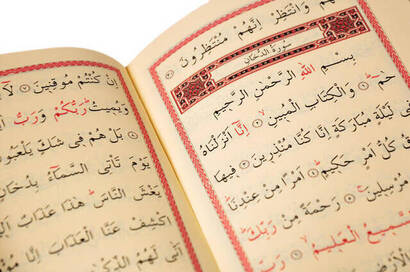 وَانْتَظِرْ اِنَّهُمْ مُنْتَظِرُونَ
سُورَةُ الدُّخَانِ
بِسْمِ اللّٰهِ الرَّحْمٰنِ الرَّحِيمِ
حٰمٓ وَالْكِتَابِ الْمُبِينِ اِنَّٓا اَنْزَلْنَاهُ
لَيْلَةٍ مُبَارَكَةٍ اِنَّا كُنَّا مُنْذِرِينَ فِيهَا
كُلُّ اَمْرٍ حَكِيمٍ اَمْرًا مِنْ عِنْدِنَا
مُرْسِلِينَ رَحْمَةً مِنْ رَبِّكَ
السَّمِيعُ الْعَلِيمُ رَبِّ
اِنْ كُنْتُمْ مُوقِنِينَ لَٓا
وَيُمِيتُ رَبُّكُمْ وَرَبُّ
بَلْ هُمْ فِي شَكٍّ يَلْعَبُو
يَوْمَ تَأْتِي السَّمَٓاءُ بِدُخَانٍ
يَغْشَى النَّاسَ هٰذَا عَذَابٌ
اكْشِفْ عَنَّا الْعَذَابَ اِنَّا
اَنّٰى لَهُمُ الذِّكْرٰى